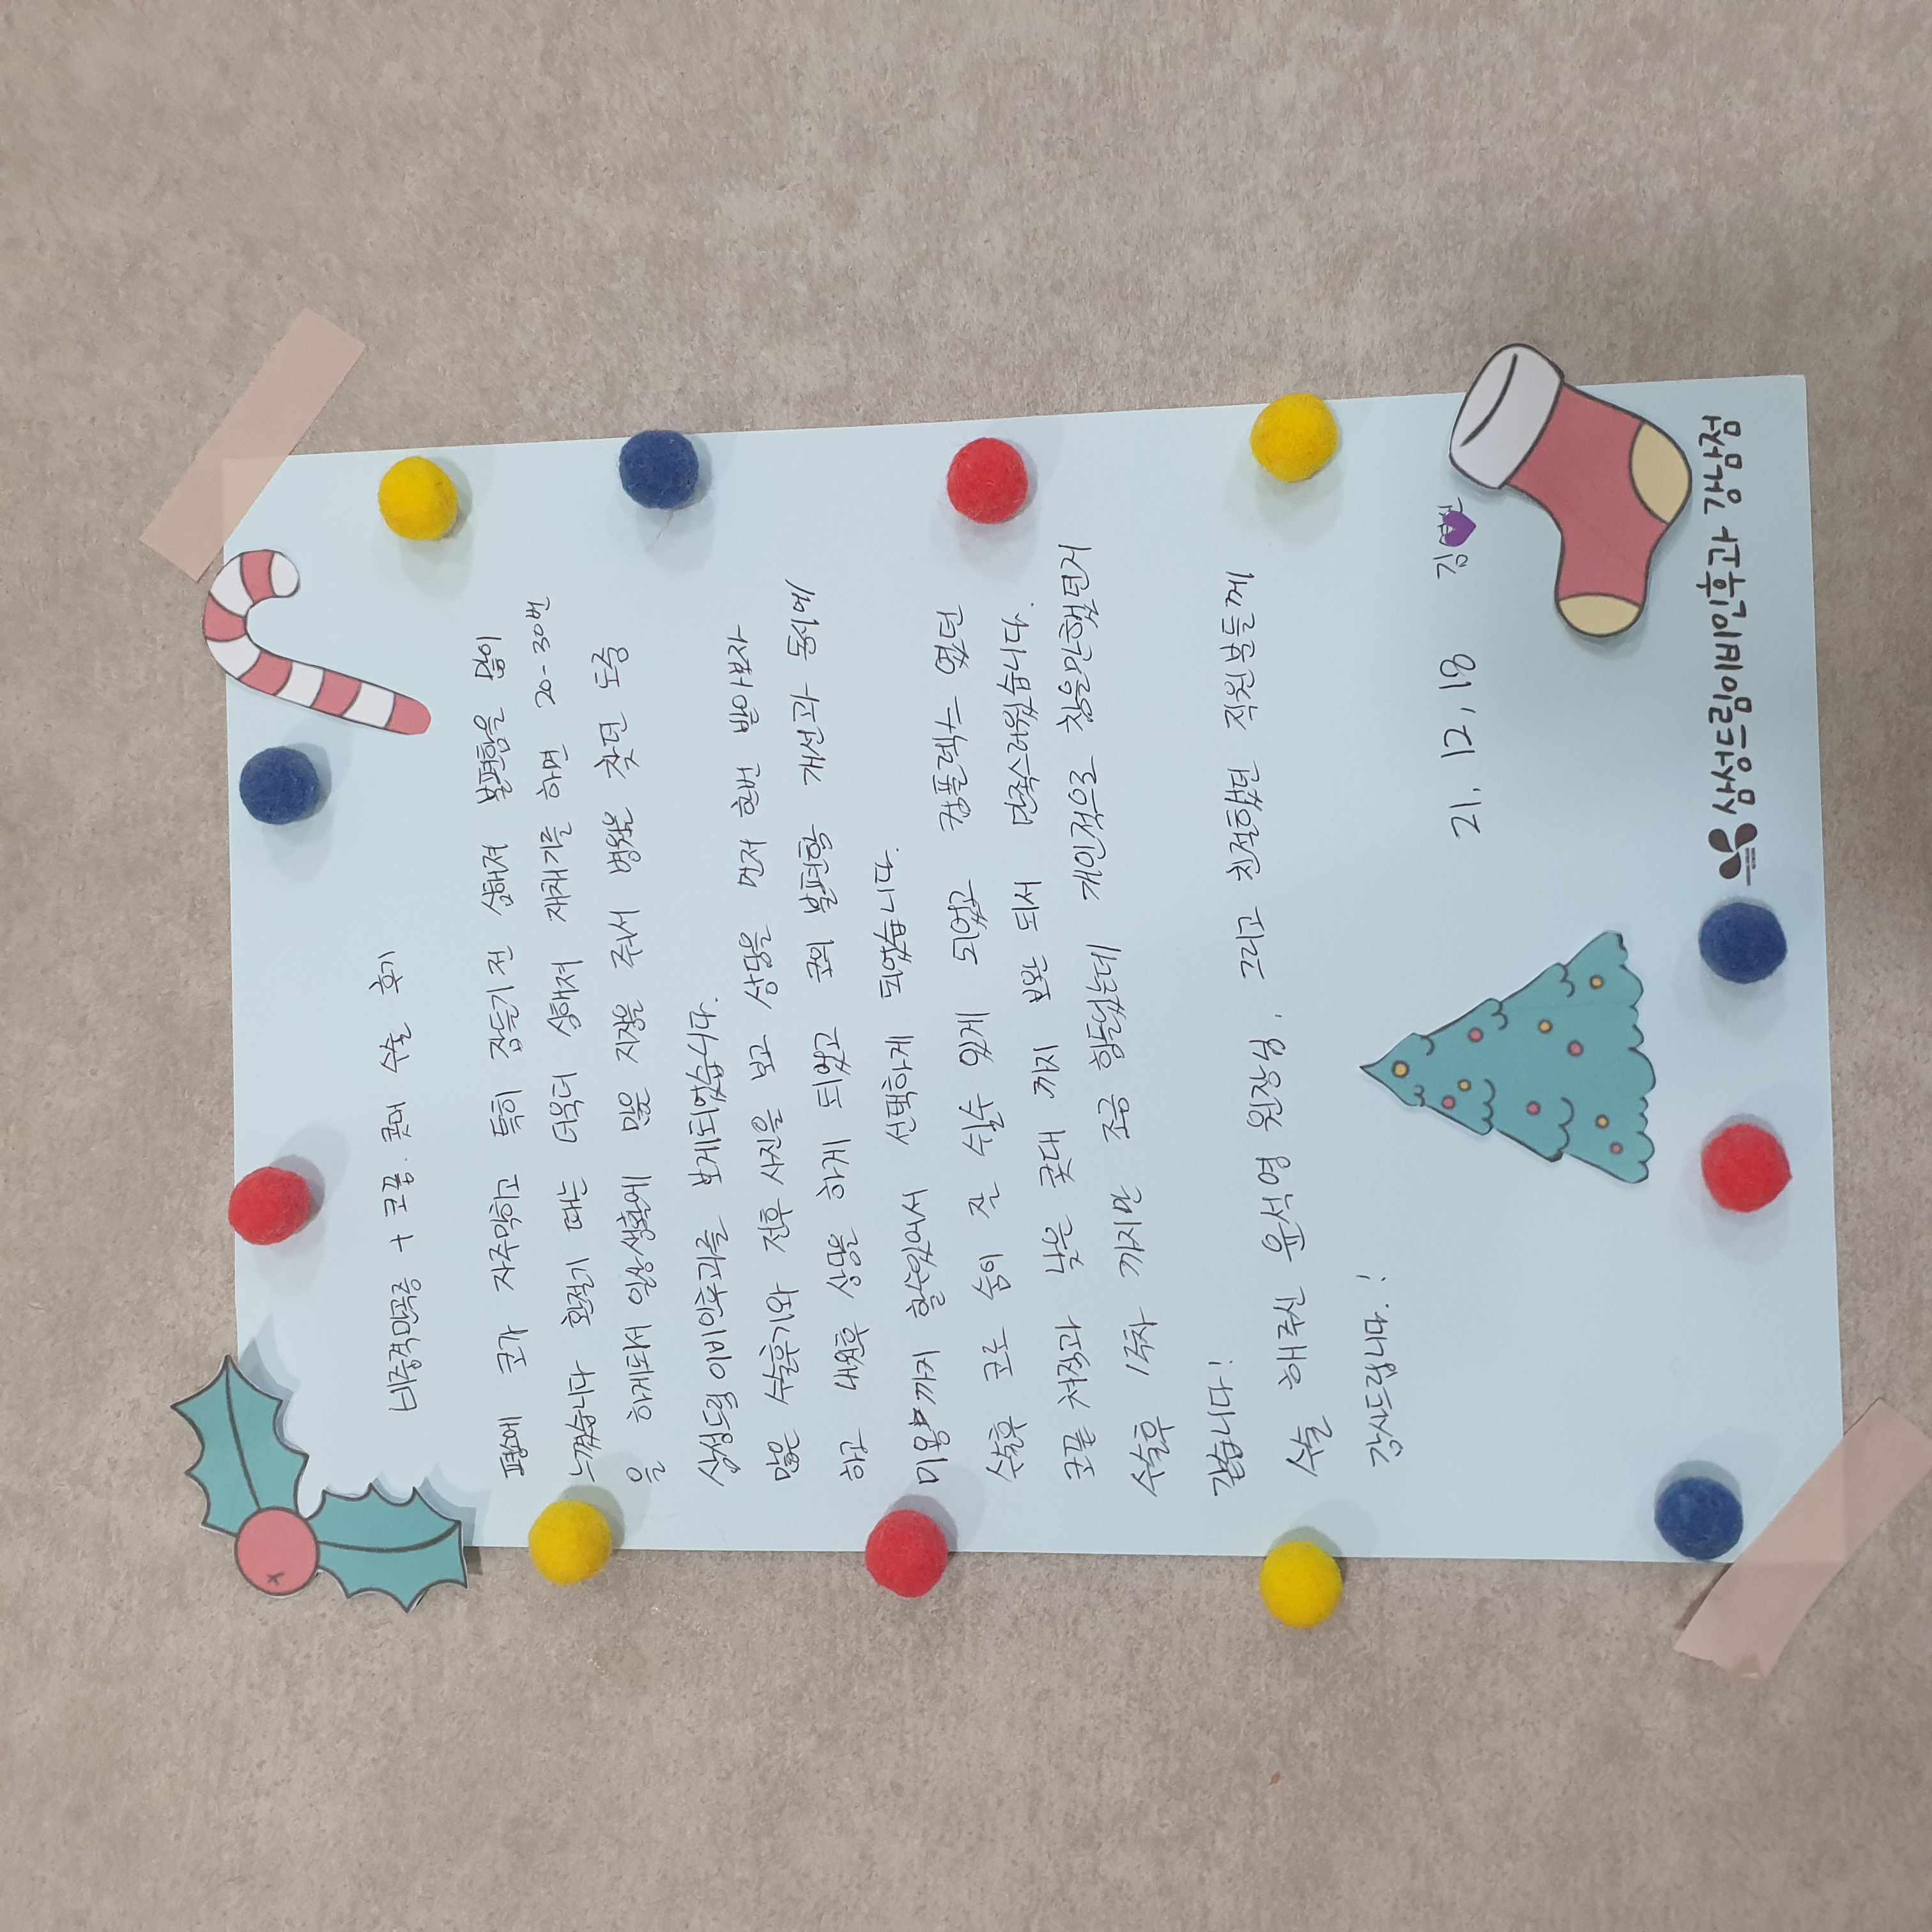 비중격만곡증 + 코끝. 콧대 수술 후기
평소에 코가 자주막히고 특히 잠들기 전 심해져 불편함을 많이
느꼈습니다 환절기 때는 더욱더 심해져 재채기를 하면 20-30번
을 하게되서 일상생활에 많은 지장을 주서 병원을 찾던 도중
삼성드림이비인후과를 보게되었습니다.
많은 수술후기와 전후 사진을 보고 상담을 먼저 한번 받아보자
하고 내원후 상담을 하게 되었고 코의 불편함 개선과 동시에
미용까지 할수있어서 선택하게 되었습니다.
수술후 코로 숨이 잘 쉴수 있게 되었고 컴플렉스 였던
코끝 처짐과 낮은 콧대 까지 보완 되서 만족스러웠습니다.
수술후 1주차 까지만 조금 힘들었는데 개인적으로 참을만했던거
같습니다!
수술 해주신 윤석영 원장님, 그리고 친절했던 직원분들께
감사드립니다.!
21. 12. 18 김
삼성드림이비인후과 + 강점용